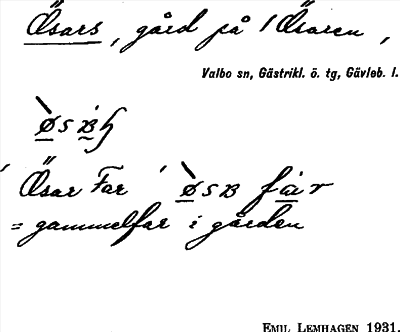 Ösars, gård på 'Ösaren,
Valbo sn, Gästrikl. ö. tg, Gävleb. l.
'Ösar Far' ø̀sʙ fa̤r
= gammelfar i gården
EMIL LEMHAGEN 1931.